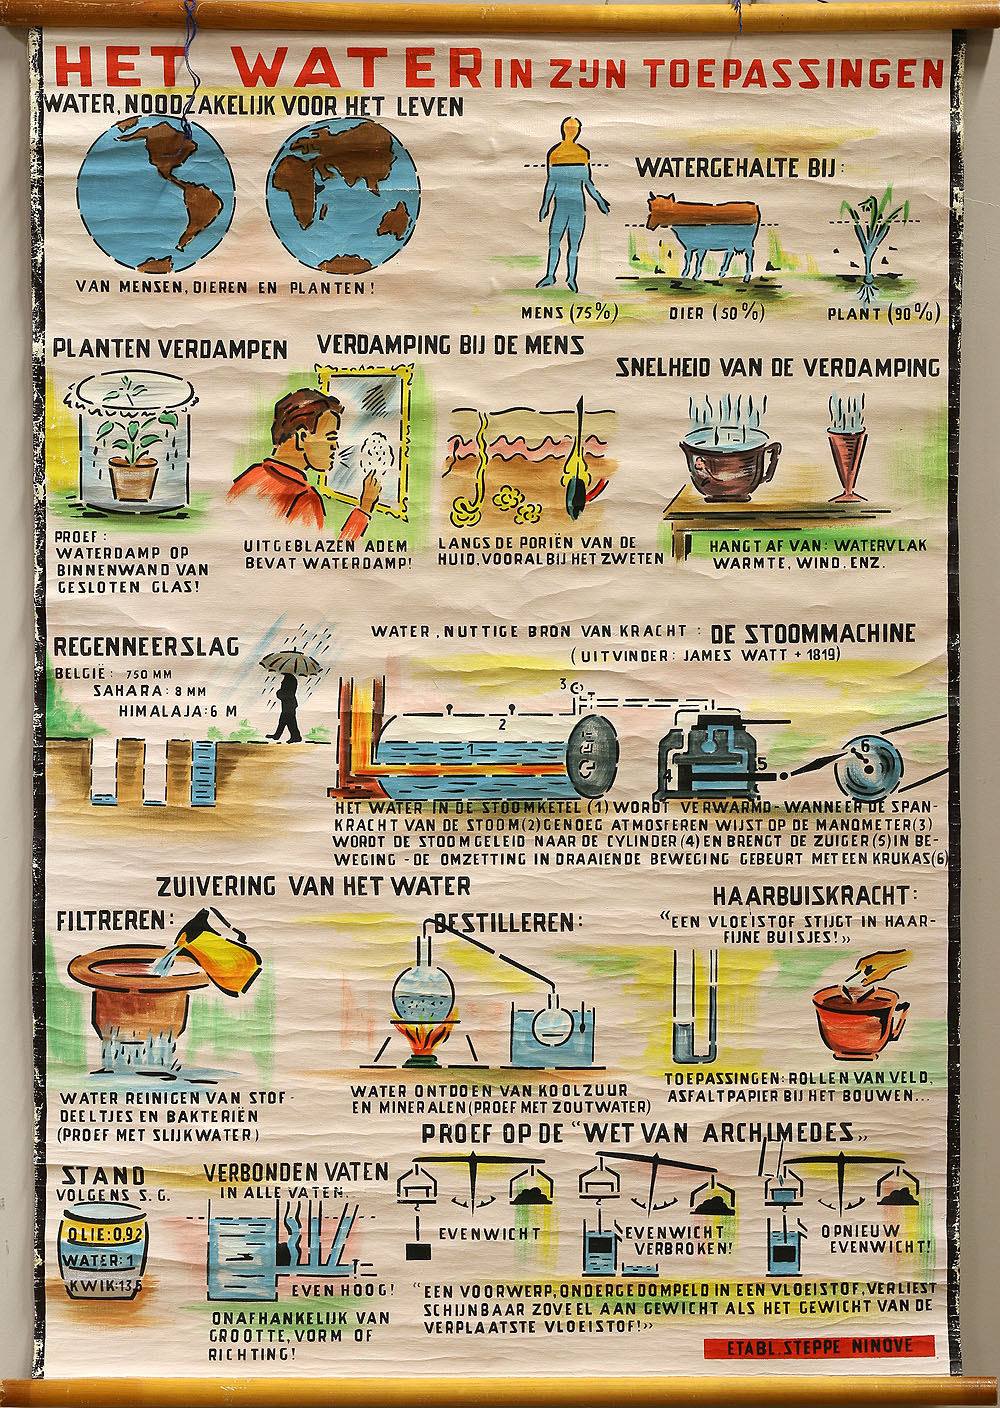 HET WATER IN ZIJN TOEPASSINGEN
WATER, NOODZAKELIJK VOOR HET LEVEN
VAN MENSEN, DIEREN EN PLANTEN!
WATERGEHALTE BIJ:
MENS (75%)
DIER (50%)
PLANT (90%)
PLANTEN VERDAMPEN
PROEF:
WATERDAMP OP
BINNENWAND VAN
GESLOTEN GLAS!
VERDAMPING BIJ DE MENS
UITGEBLAZEN ADEM
BEVAT WATERDAMP!
LANGS DE PORIËN VAN DE
HUID, VOORAL BIJ HET ZWETEN
SNELHEID VAN DE VERDAMPING
HANGT AF VAN: WATERVLAK
WARMTE, WIND. ENZ.
REGENNEERSLAG
BELGIË: 750 MM
SAHARA: 8 MM
HIMALAJA: 6 M
WATER, NUTTIGE BRON VAN KRACHT: DE STOOMMACHINE
(UITVINDER: JAMES WATT + 1819)
3
2
1
4
5
6
HET WATER IN DE STOOMKETEL (1) WORDT VERWARMD - WANNEER DE SPAN-
KRACHT VAN DE STOOM (2) GENOEG ATMOSFEREN WIJST OP DE MANOMETER (3)
WORDT DE STOOM GELEID NAAR DE CYLINDER (4) EN BRENGT DE ZUIGER (5) IN BE-
WEGING - DE OMZETTING IN DRAAIENDE BEWEGING GEBEURT MET EEN KRUKAS (6)
ZUIVERING VAN HET WATER
FILTREREN:
WATER REINIGEN VAN STOF-
DEELTJES EN BAKTERIËN
(PROEF MET SLIJKWATER)
DESTILLEREN:
WATER ONTDOEN VAN KOOLZUUR
EN MINERALEN (PROEF MET ZOUTWATER)
HAARBUISKRACHT:
"EEN VLOEISTOF STIJGT IN HAAR-
FIJNE BUISJES!"
TOEPASSINGEN: ROLLEN VAN VELD,
ASFALTPAPIER BIJ HET BOUWEN...
STAND
VOLGENS S.G.
OLIE: 0,92
WATER: 1
KWIK: 13,6
VERBONDEN VATEN
IN ALLE VATEN.
EVEN HOOG!
ONAFHANKELIJK VAN
GROOTTE, VORM OF
RICHTING!
PROEF OP DE "WET VAN ARCHIMEDES"
EVENWICHT
EVENWICHT
VERBROKEN!
OPNIEUW
EVENWICHT!
"EEN VOORWERP, ONDERGEDOMPELD IN EEN VLOEISTOF, VERLIEST
SCHIJNBAAR ZOVEEL AAN GEWICHT ALS HET GEWICHT VAN DE
VERPLAATSTE VLOEISTOF!"
ETABL. STEPPE NINOVE